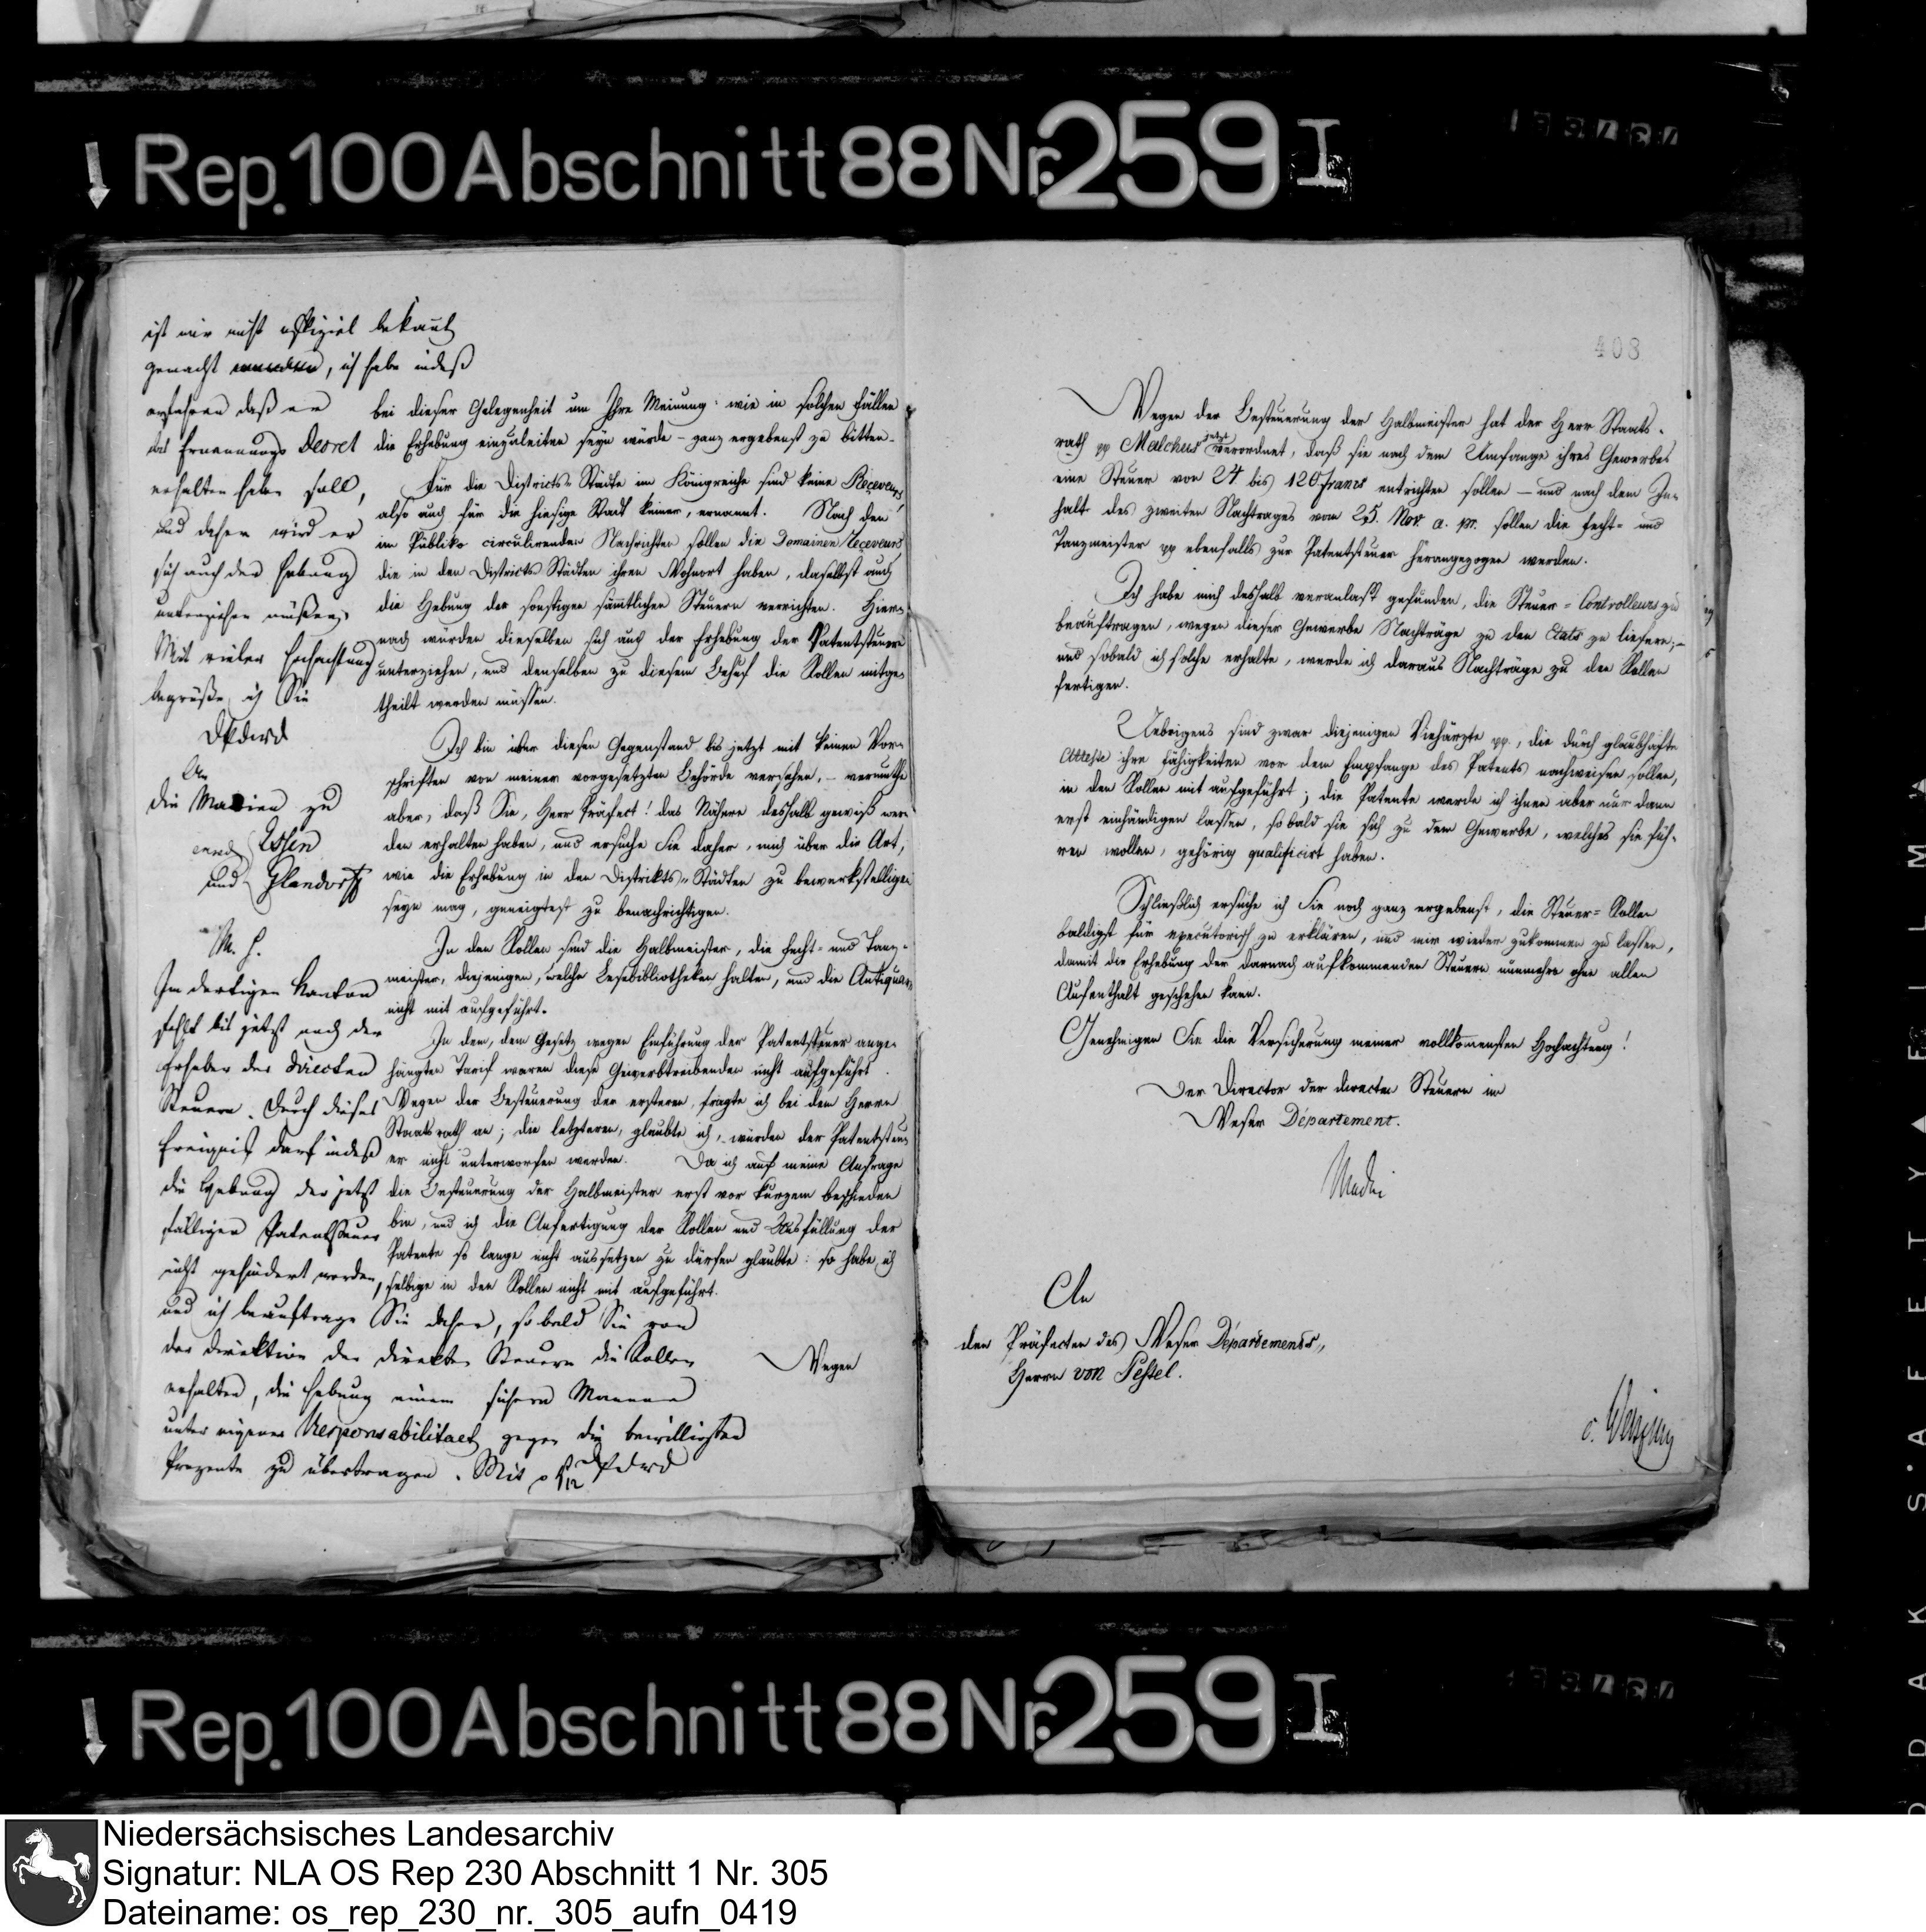 Rep. 100 Abschnitt 88 Nr. 259 I
ist mir nicht offiziel bekant
gemacht worden, ich habe indeß
erfahren daß er
das Ernennungs Decret
erhalten haben soll,
und daher wird er
sich auch der Hebung
unterziehen müßen,
Mit vieler Hochachtung
begrüße ich Sie
An
die Mairien zu
Essen
und Glandorff
M. H.
Im dortigen Kanton
fehlt bis jetzt noch der
Erheber der directen
Steuern. Durch dieses
Ereigniß darf indeß
die Hebung der jetzt
fälligen Patentsteuer
nicht gehindert werden,
und ich beauftrage Sie daher, so bald Sie von
der Direktion der direkten Steuern die Rollen
erhalten, die Hebung einem sichern Manne
unter eigener Responsabilitaet gegen die bewilligten
Prozente zu übertragen. Mit
bei dieser Gelegenheit um Ihre Meinung: wie in solchen Fällen
die Erhebung einzuleiten seyn würde – ganz ergebenst zu bitten.
Für die Districts-Städte im Königreiche sind keine Receveurs,
also auch für die hiesige Stadt keiner, ernannt. Nach den
im Publiko circulirenden Nachrichten sollen die Domainen Receveurs
die in den Districts-Städten ihren Wohnort haben, daselbst auch
die Hebung der sonstigen sämmtlichen Steuern verrichten. Hier-
nach würden dieselben sich auch der Erhebung der Patentsteuer
unterziehen, und denselben zu diesem Behuf die Rollen mitge-
theilt werden müssen.
Ich bin über diesen Gegenstand bis jetzt mit keinen Vor-
schriften von meiner vorgesetzten Behörde versehen, – vermuthe
aber, daß Sie, Herr Präfect! das Nähere deshalb gewiß wer-
den erhalten haben, und ersuche Sie daher, mich über die Art,
wie die Erhebung in den Distrikts-Städten zu bewerkstelligen
seyn mag, geneigtest zu benachrichtigen.
In den Rollen sind die Halbmeister, die Fecht- und Tanz-
meister, diejenigen, welche Lesebibliotheken halten, und die Antiquare
nicht mit aufgeführt.
In dem, dem Gesetz wegen Einführung der Patentsteuer ange-
hängten Tarif waren diese Gewerbtreibenden nicht aufgeführt.
Wegen der Besteuerung der ersteren, fragte ich bei dem Herrn
Staatsrath an; die letzteren, glaubte ich, würden der Patentsteu-
er nicht unterworfen werden. Da ich auf meine Anfrage
die Besteuerung der Halbmeister erst vor kurzem beschieden
bin, und ich die Anfertigung der Rollen und Ausfüllung der
Patente so lange nicht aussetzen zu dürfen glaubte: so habe ich
selbige in den Rollen nicht mit aufgeführt.
Wegen
408
Wegen der Besteuerung der Halbmeister hat der Herr Staats-
rath pp Malchus jetzt verordnet, daß sie nach dem Umfange ihres Gewerbes
eine Steuer von 24 bis 120 Francs entrichten sollen – und nach dem In-
halt des zweiten Nachtrages vom 25. Nov. a. pr. sollen die Fecht- und
Tanzmeister pp ebenfalls zur Patentsteuer herangezogen werden.
Ich habe mich deshalb veranlaßt gefunden, die Steuer-Controlleurs zu
beauftragen, wegen dieser Gewerbe Nachträge zu den Etats zu liefern; –
und sobald ich solche erhalte, werde ich daraus Nachträge zu den Rollen
fertigen.
Uebrigens sind zwar diejenigen Viehärzte pp., die durch glaubhafte
Atteste ihre Fähigkeiten vor dem Empfange des Patents nachweisen sollen,
in den Rollen mit aufgeführt; die Patente werde ich ihnen aber nur dann
erst einhändigen lassen, sobald sie sich zu dem Gewerbe, welches sie füh-
ren wollen, gehörig qualificirt haben.
Schließlich ersuche ich Sie noch ganz ergebenst, die Steuer-Rollen
baldigst für executorisch zu erklären, und mir wieder zukommen zu lassen,
damit die Erhebung der darnach aufkommenden Steuern nunmehro ohne allen
Aufenthalt geschehen kann.
Genehmigen Sie die Versicherung meiner vollkommensten Hochachtung!
Der Director der directen Steuern im
Weser Département.
An
den Präfecten des Weser Departements,
Herrn von Pestel.
Rep. 100 Abschnitt 88 Nr. 259 I
Niedersächsisches Landesarchiv
Signatur: NLA OS Rep 230 Abschnitt 1 Nr. 305
Dateiname: os_rep_230_nr._305_aufn_0419